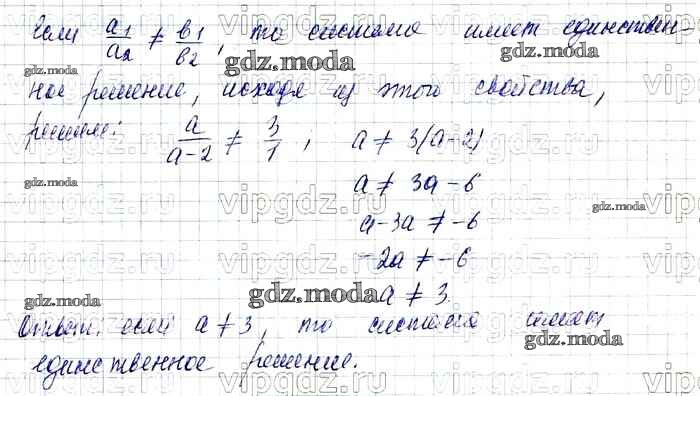 Если a₁/a₂ ≠ b₁/b₂, то система имеет единствен-
ное решение, исходя из этого свойства,
решаем: a/(a-2) ≠ 3/1; a ≠ 3(a-2)
a ≠ 3a-6
a-3a ≠ -6
-2a ≠ -6
a ≠ 3.
Ответ: если a ≠ 3, то система имеет
единственное решение.
gdz.moda
vipgdz.ru